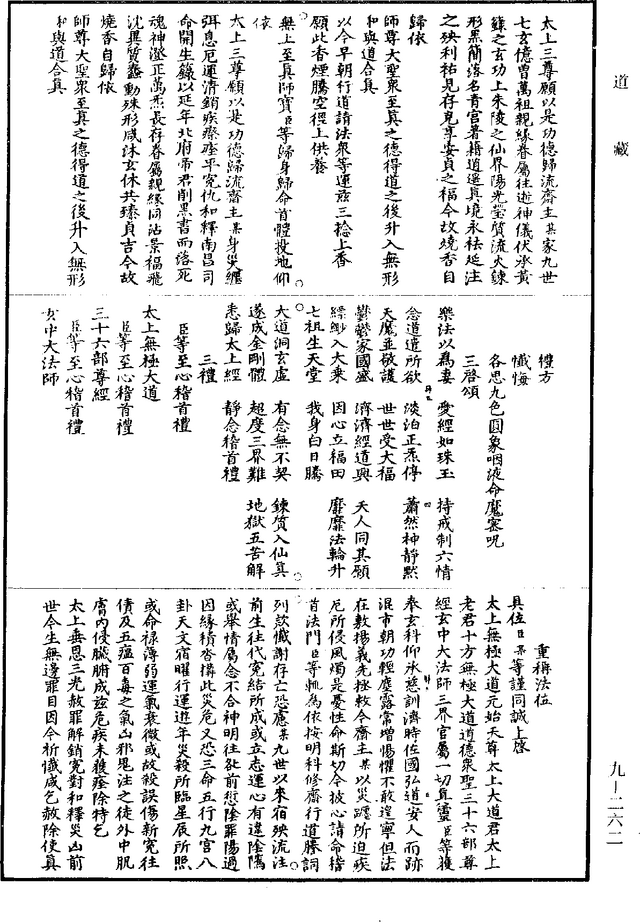 道藏
太上三尊願以是功德歸流齋主某家九世
七玄億曾萬祖親緣眷屬往逝神儀伏承黃
籙之玄功上朱陵之仙界陽光瑩質流火鍊
形黑簡落名青宮著籍道還真境永袪延注
之殃利祐見存克享安貞之福今故燒香自
歸依
師尊大聖眾至真之德得道之後升入無形
和與道合真
以今早朝行道請法眾等運茲三捻上香
願此香煙騰空徑上供養
無上至真師寶臣等歸身歸命首體投地仰
依
太上三尊願以是功德歸流齋主某身災纏
弭息厄運清銷疾瘵痊平冤仇和釋南昌司
命開生籙以延年北府帝君削黑書而落死
魂神澄正萬炁長存眷屬親緣同沾景福飛
沈異質蠢動殊形咸沐玄休共臻貞吉今故
燒香自歸依
師尊大聖眾至真之德得道之後升入無形
和與道合真
禮方
懺悔
各思九色圓象咽液命魔密呪
三啓頌
樂法以為妻　愛經如珠玉　持戒制六情
念道遣所欲　淡泊正炁停　蕭然神靜默
天魔並敬護　世世受大福
鬱鬱家國盛　濟濟經道興　天人同其願
縹緲入大乘　因心立福田　靡靡法輪升
七祖生天堂　我身白日騰
大道洞玄虛　有念無不契　鍊質入仙真
遂成金剛體　超度三界難　地獄五苦解
悉歸太上經　靜念稽首禮
三禮
臣等至心稽首禮
太上無極大道
臣等至心稽首禮
三十六部尊經
臣等至心稽首禮
玄中大法師
重稱法位
具位臣某等謹同誠上啓
太上無極大道元始天尊太上大道君太上
老君十方無極大道道德眾聖三十六部尊
經玄中大法師三界官屬一切真靈臣等獲
奉玄科仰承慈訓濟時佐國弘道安人而跡
混市朝功輕塵露常增惕懼不敢遑寧但法
在敷揚義先拯救今齋主某以災躔所迫疾
厄所侵風燭是憂性命斯切今披心請命稽
首法門臣等輒為依按明科修齋行道牋詞
列款懺謝存亡恐慮某九世以來宿殃流注
前生往代冤結所成或立志運心有違陰隲
或舉情屬念不合神明往咎前愆陰罪陽過
因緣積沓搆此災危又恐三命五行九宮八
卦天文宿曜行運遊年災殺所臨星辰所照
或命祿薄弱運氣衰微或故殺誤傷新冤往
債及五瘟百毒之氣凶邪鬼注之徒外中肌
膚內侵臟腑成茲危疾未獲痊除特乞
太上垂恩三光赦罪解銷冤對和釋災凶前
世今生無邊罪目因今祈懺咸乞赦除使真
九—二六二